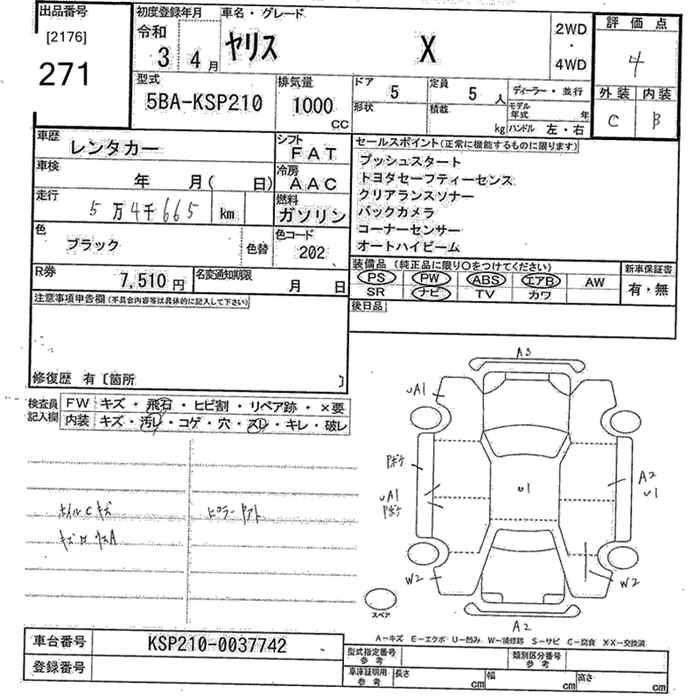 出品番号
[2176]
271
初度登録年月
令和
3 4月
車名・グレード
ヤリス X
2WD
・
4WD
評価点
4
外装 内装
C B
型式
5BA-KSP210
排気量
1000
CC
ドア 5
形状
定員 5人
積載 kg
ディーラー・並行
モデル年式 年
ハンドル 左・右
車歴
レンタカー
シフト
FAT
車検
年 月( 日)
冷房
AAC
走行
5万4千665 km
燃料
ガソリン
色
ブラック
色替
色コード
202
R券
7,510円
名変通知期限
月 日
セールスポイント(正常に機能するものに限ります)
プッシュスタート
トヨタセーフティーセンス
クリアランスソナー
バックカメラ
コーナーセンサー
オートハイビーム
装備品(純正品に限り○をつけてください)
PS PW ABS エアB AW
SR ナビ TV カワ
新車保証書
有・無
後日品
注意事項申告欄(不具合内容等は具体的に記入して下さい)
修復歴 有〔箇所 〕
検査員
記入欄
FW キズ・飛石・ヒビ割・リペア跡・×要
内装 キズ・汚レ・コゲ・穴・スレ・キレ・破レ
ホイルCキズ
ピラー
A3
uA1
Pボケ
uA1
Pボケ
u1
A2
u1
W2
W2
A2
スペア
A-キズ E-エクボ U-凹み W-補修跡 S-サビ C-腐食 XX-交換済
車台番号
KSP210-0037742
登録番号
型式指定番号
参考
類別区分番号
参考
車庫証明用
参考
長さ cm
幅 cm
高さ cm